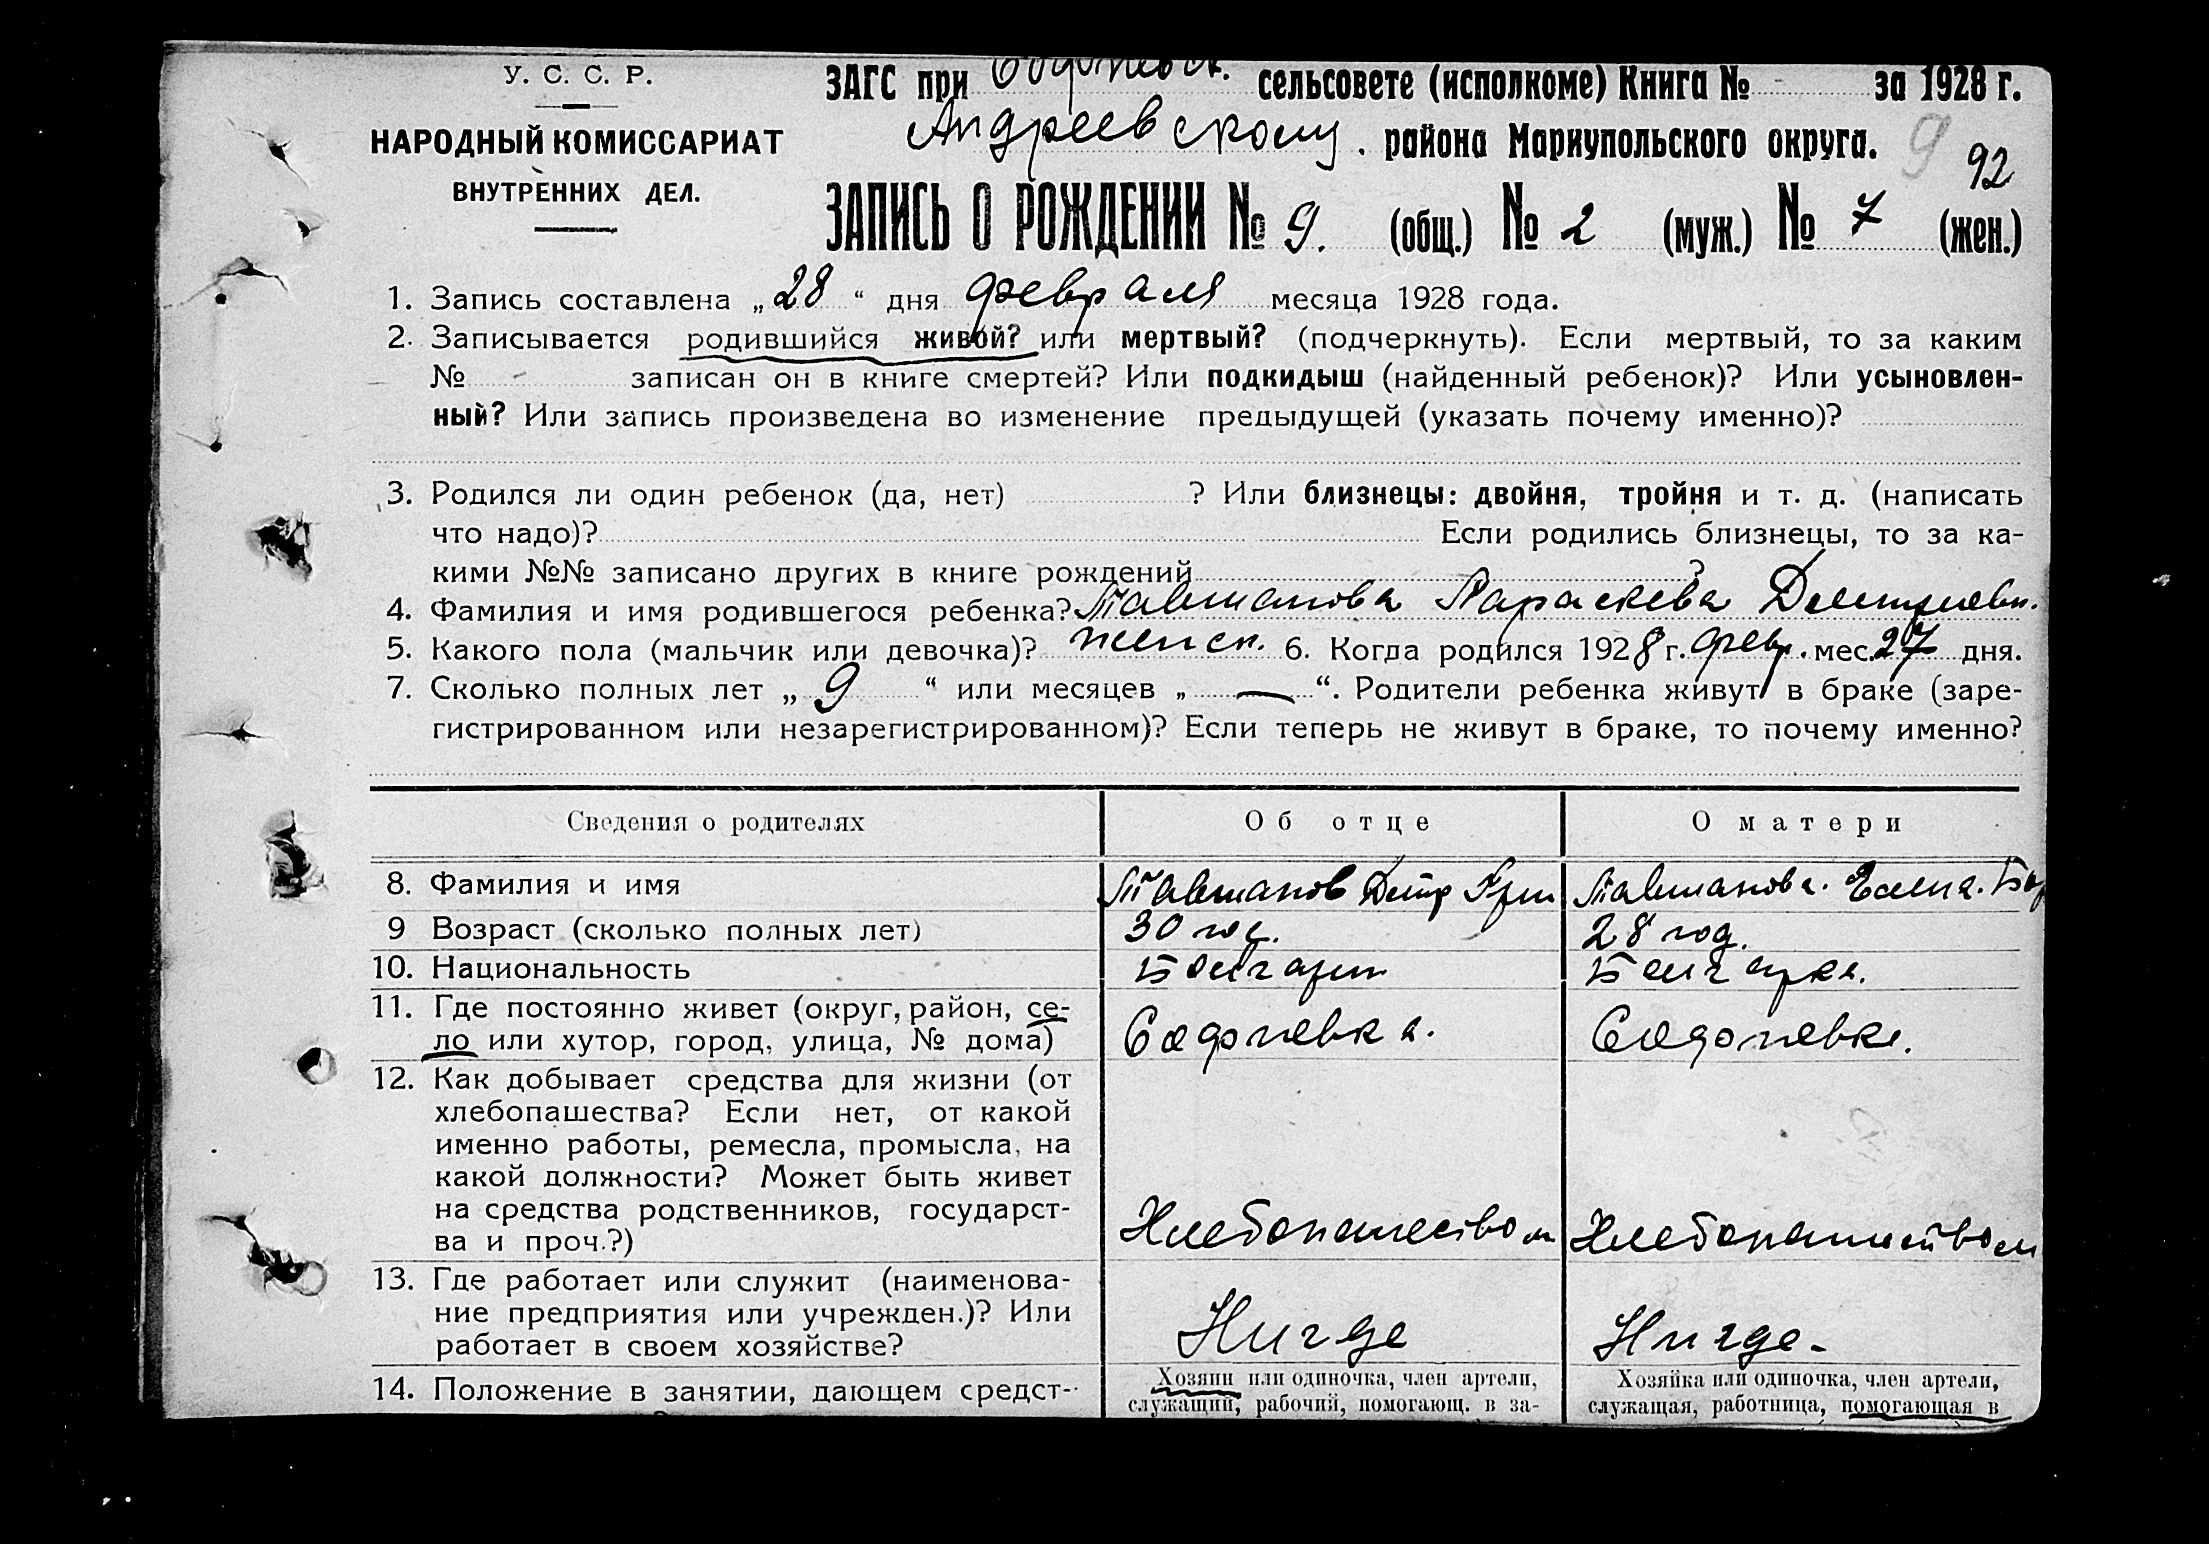 У. С. С. Р.
НАРОДНЫЙ КОМИССАРИАТ
ВНУТРЕННИХ ДЕЛ.
ЗАГС при сельсовете (исполкоме) Книга № за 1928 г.
Андреевскому. района Мариупольского округа.
9 92
ЗАПИСЬ О РОЖДЕНИИ № 9. (общ.) № 2 (муж.) № 7 (жен.)
1. Запись составлена „28“ дня февраля месяца 1928 года.
2. Записывается родившийся живой? или мертвый? (подчеркнуть). Если мертвый, то за каким
№ - записан он в книге смертей? Или подкидыш (найденный ребенок)? Или усыновлен-
ный? Или запись произведена во изменение предыдущей (указать почему именно)?
3. Родился ли один ребенок (да, нет) ? Или близнецы: двойня, тройня и т. д. (написать
что надо)? Если родились близнецы, то за ка-
кими №№ записано других в книге рождений ?
4. Фамилия и имя родившегося ребенка? Тавшанова Параскева
5. Какого пола (мальчик или девочка)? женск. 6. Когда родился 1928 г. февр. мес. 27 дня.
7. Сколько полных лет „ 9 “ или месяцев „ — “. Родители ребенка живут в браке (заре-
гистрированном или незарегистрированном)? Если теперь не живут в браке, то почему именно?
Сведения о родителях Об отце О матери
8. Фамилия и имя Тавшанов Дмтр Тавшанова. Елена.
9 Возраст (сколько полных лет) 30 год. 28 год.
10. Национальность Болгарин Болгарка.
11. Где постоянно живет (округ, район, се-
ло или хутор, город, улица, № дома)
12. Как добывает средства для жизни (от
хлебопашества? Если нет, от какой
именно работы, ремесла, промысла, на
какой должности? Может быть живет
на средства родственников, государст-
ва и проч.?) Хлебопашеством Хлебопашеством
13. Где работает или служит (наименова-
ние предприятия или учрежден.)? Или
работает в своем хозяйстве? Нигде Нигде-
14. Положение в занятии, дающем средст- Хозяин или одиночка, член артели, Хозяйка или одиночка, член артели,
служащий, рабочий, помогающ. в за- служащая, работница, помогающая в